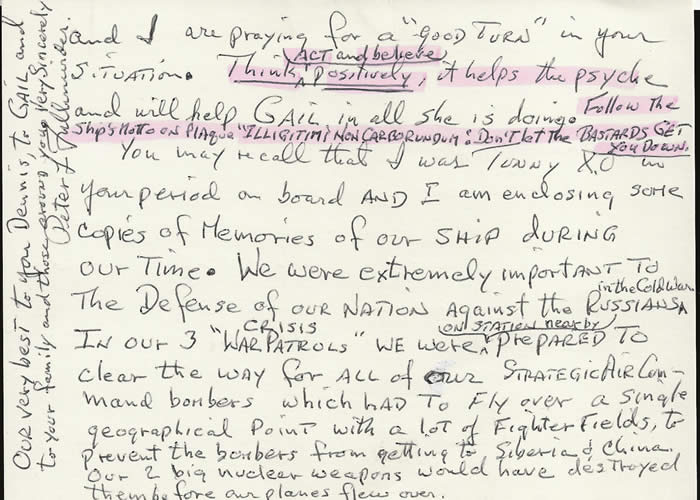 and I are praying for a "GOOD TURN" in your
SITUATION. Think, ACT and believe positively, it helps the psyche
and will help GAIL in all she is doing. Follow the
Ship's Motto on Plaque "ILLIGITIMI NON CARBORUNDUM": Don't let the BASTARDS GET
YOU DOWN.
You may recall that I was TUNNY XO in
your period on board AND I am enclosing some
copies of Memories of our SHIP DURING
our Time. We were extremely important TO
The Defense of our NATION against the RUSSIANS in the Cold War.
IN our 3 "CRISIS WAR PATROLS" WE were, ON STATION nearby PREPARED TO
clear the WAY for ALL of our STRATEGIC Air Com-
mand bombers which HAD TO Fly over a single
geographical Point with a lot of Fighter Fields, to
prevent the bombers from getting to Siberia & China.
Our 2 big nuclear weapons would have destroyed
them before our planes flew over.
Our very best to you Dennis, to GAIL and
to your family and those around you. Very Sincerely
Peter L.